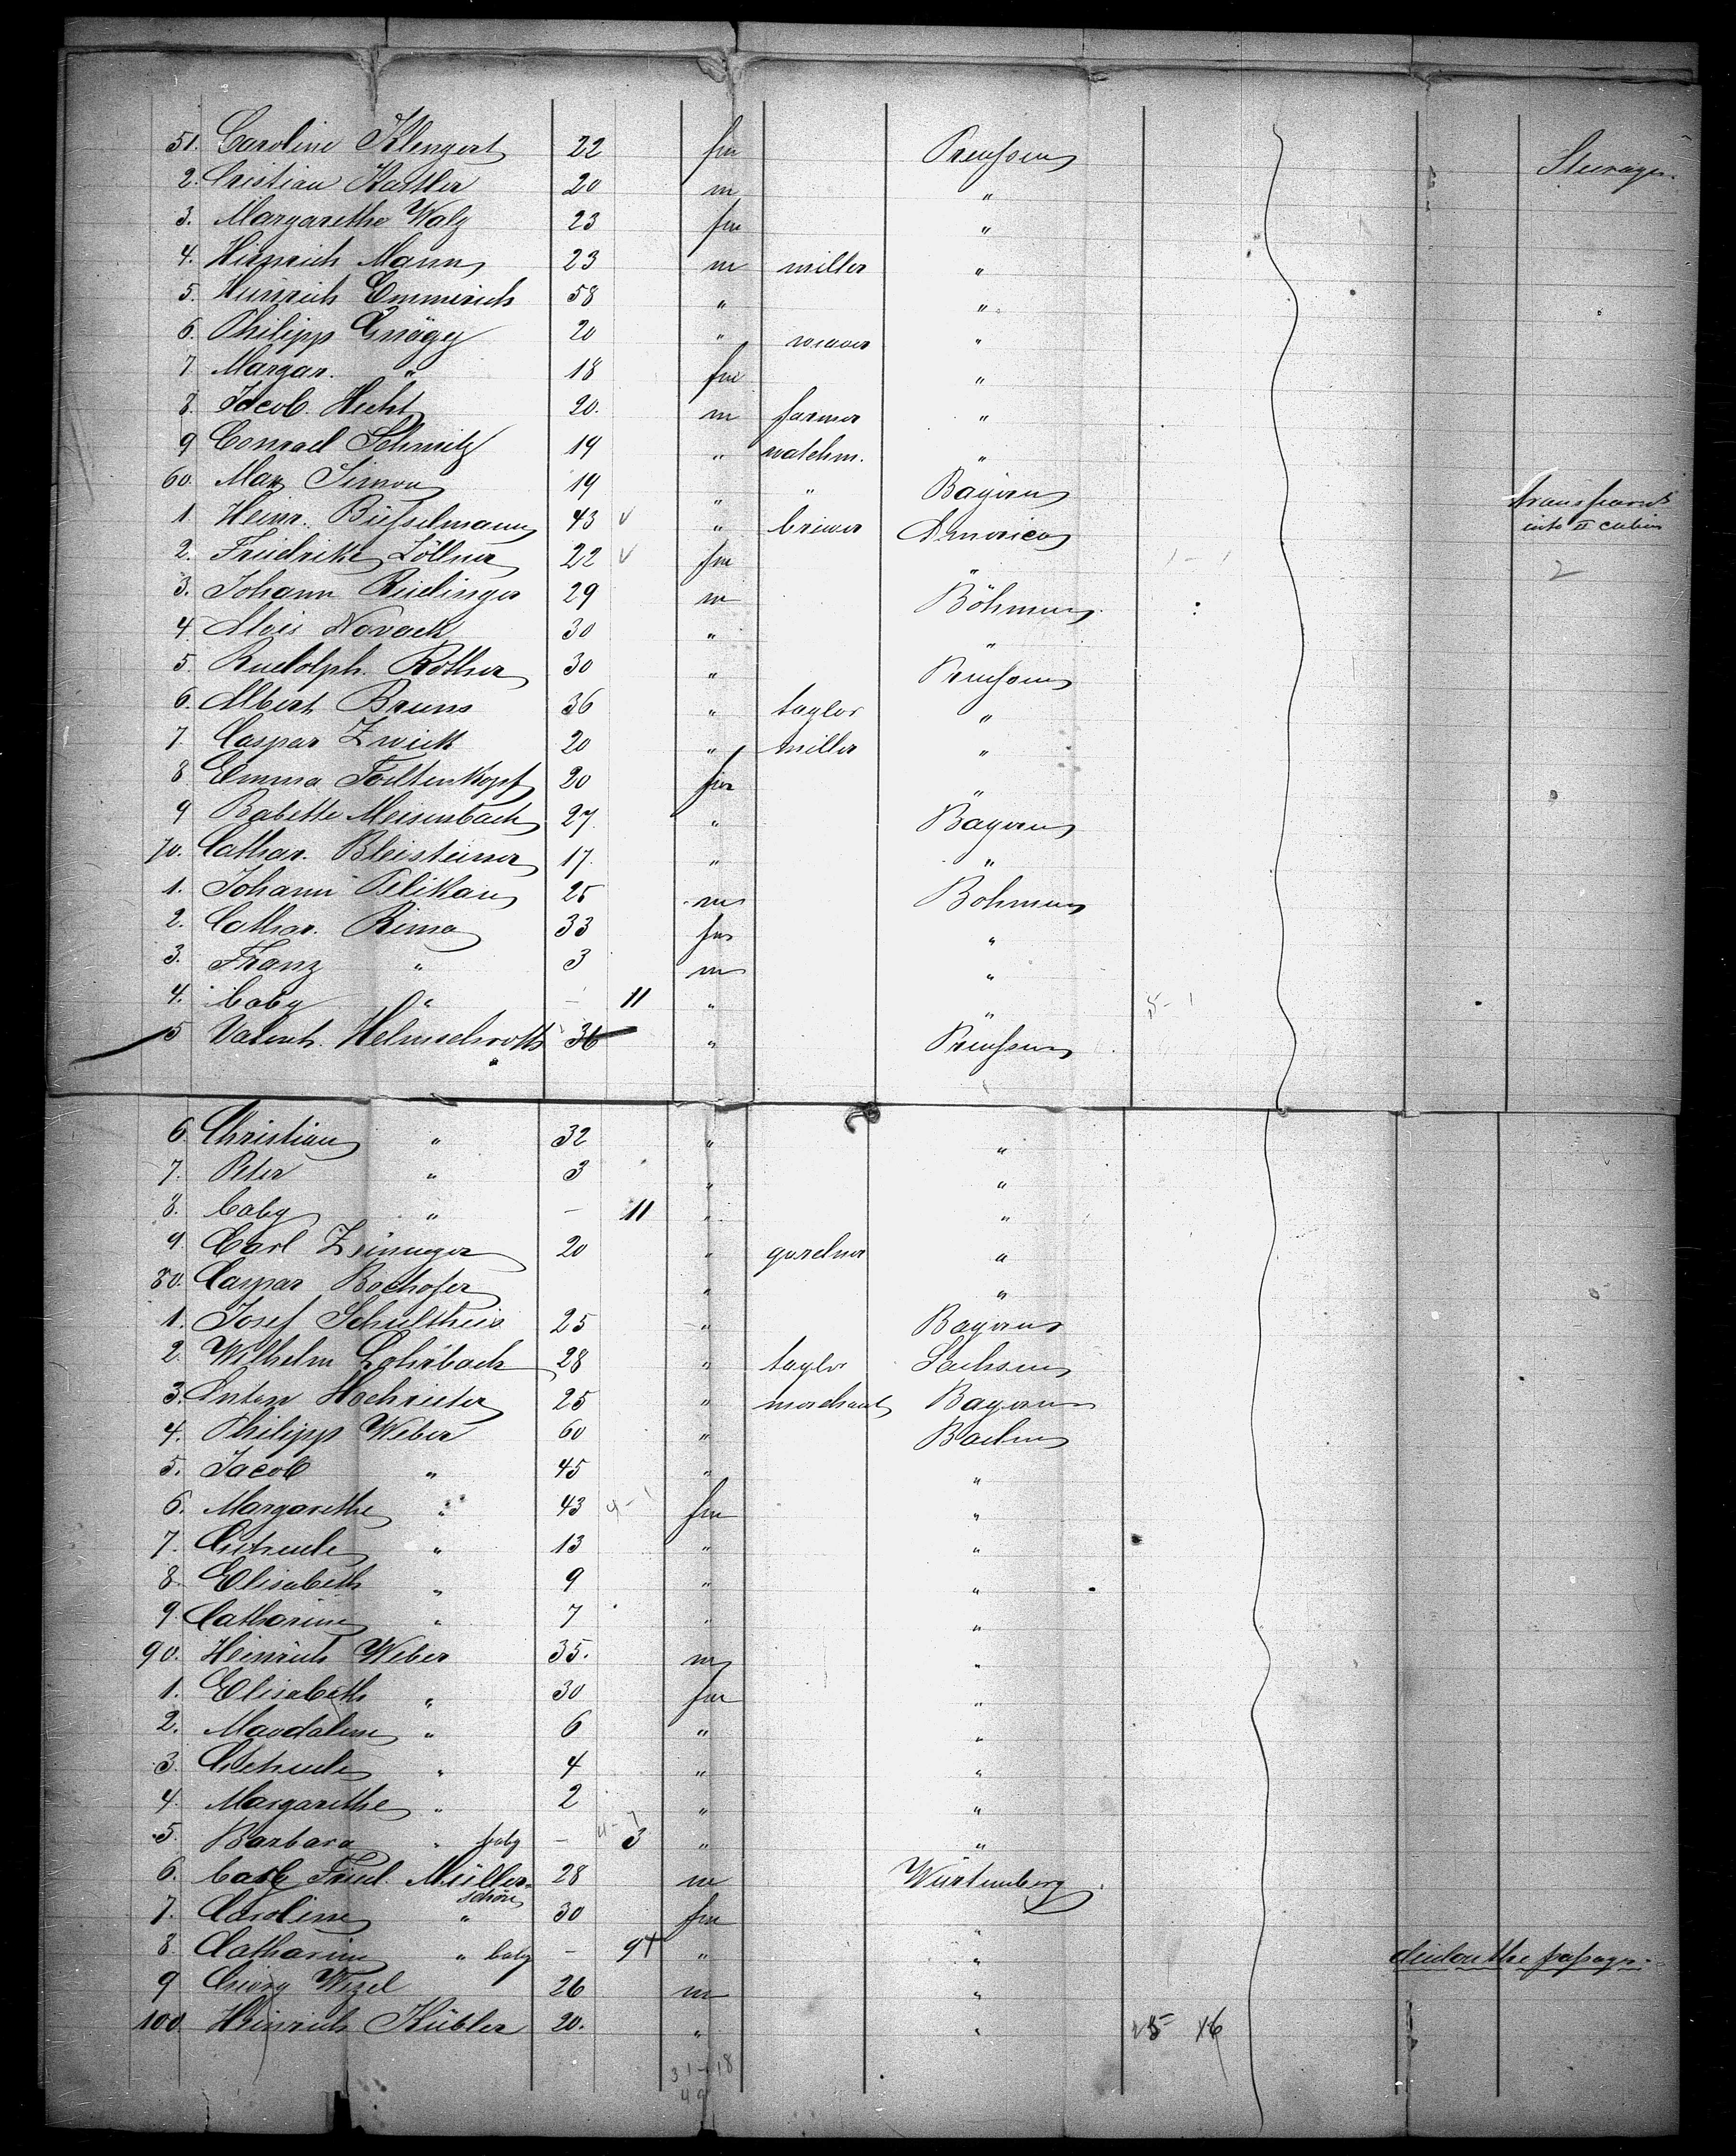 51. Caroline Klengert 22 fm Preussen Steerage.
2. Cristian Kastler 20 m "
3. Margarethe Walz 23 fm "
4. Hinrich Mann 23 m miller "
5. Heinrich Emmerich 58 " "
6. Philipp Gnägy 20 " weaver "
7 Margar. " 18 fm "
8. Jacob Hecht 20. m farmer "
9 Conrad Schmitz 19 " watchm. "
60. Max Simon 19 " " Bayern
1. Heinr. Büsselmann 43 " brewer America into II cabin
2. Friedrike Zöllner 22 fm " 2
3. Johann Reidinger 29 m Böhmen
4 Alois Novack 30 " "
5 Rudolph. Rother 30 " Preussen
6. Albert Bruns 36 " taylor "
7 Caspar Zwick 20 " miller "
8 Emma 20 fm "
9 Babette Meisenbach 27 " Bayern
70. Cathar. Bleisteiner 17. " "
1. Johann Pelikan 25 m Böhmen
2. Cathar. Rima 33 fm "
3. Franz " 3 m "
4. baby " - 11 " " 5-1
5 Valent. Helmschroth 36 " Preussen
6. Christian " 32 " "
7. Peter " 3 " "
8. baby " - 11 " "
9. Carl 20 " gardner "
80. Caspar Bochofer " "
1. Josef Schultheis 25 " Bayern
2. Wilhelm Lohrbach 28 " taylor Sachsen
3. Anton Hochrieter 25 " merchant Bayern
4. Philipp Weber 60 " Baden
5. Jacob " 45 " "
6. Margarethe " 43 4-1 fm "
7. " 13 " "
8. Elisabeth " 9 " "
9. Catharine " 7 " "
90. Heinrich Weber 35. m "
1. Elisabeth " 30 fm "
2. Magdalene " 6 " "
3. " 4 " "
4. Margarethe " 2 " "
5. Barbara " baby - 3 " "
6. Carl Fried. Müller- 28 m Würtemberg
schön
7. Caroline " 30 fm "
8 Catharine " baby - 9 " " died on the passage.
9 Georg Wezel 26 m "
100 Heinrich Kübler 20. " "
31-18
49